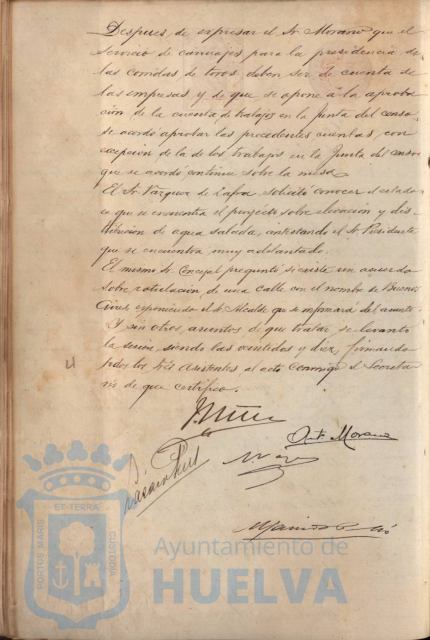 Despues de expresar el Sr Morano que el
servicio de carruajes para la presidencia de
las corridas de toros, deben ser de cuenta de
las empresas y de que se opone á la aproba-
ción de la cuenta de trabajos en la Junta del censo,
se acordó aprobar las precedentes cuentas, con
excepción de la de los trabajos en la Junta del censo
que se acordó continue sobre la mesa.
El Sr Vazquez de Zafra solicitó conocer el estado
en que se encuentra el proyecto sobre elevación y dis-
tribución de agua salada, contestando el Sr Presidente
que se encuentra muy adelantado.
El mismo Sr Concejal preguntó si existe un acuerdo
sobre rotulación de una calle con el nombre de Buenos
Aires, exponiendo el Sr Alcalde que se informará del asunto.
Y sin otros asuntos de que tratar se levantó
la sesión, siendo las veintidos y diez, firmando
todos los Sres asistentes al acto conmigo el Secreta-
rio de que certifico.
Anto Morano
PORTUS MARIS
ET TERRÆ
CUSTODIA
Ayuntamiento de
HUELVA